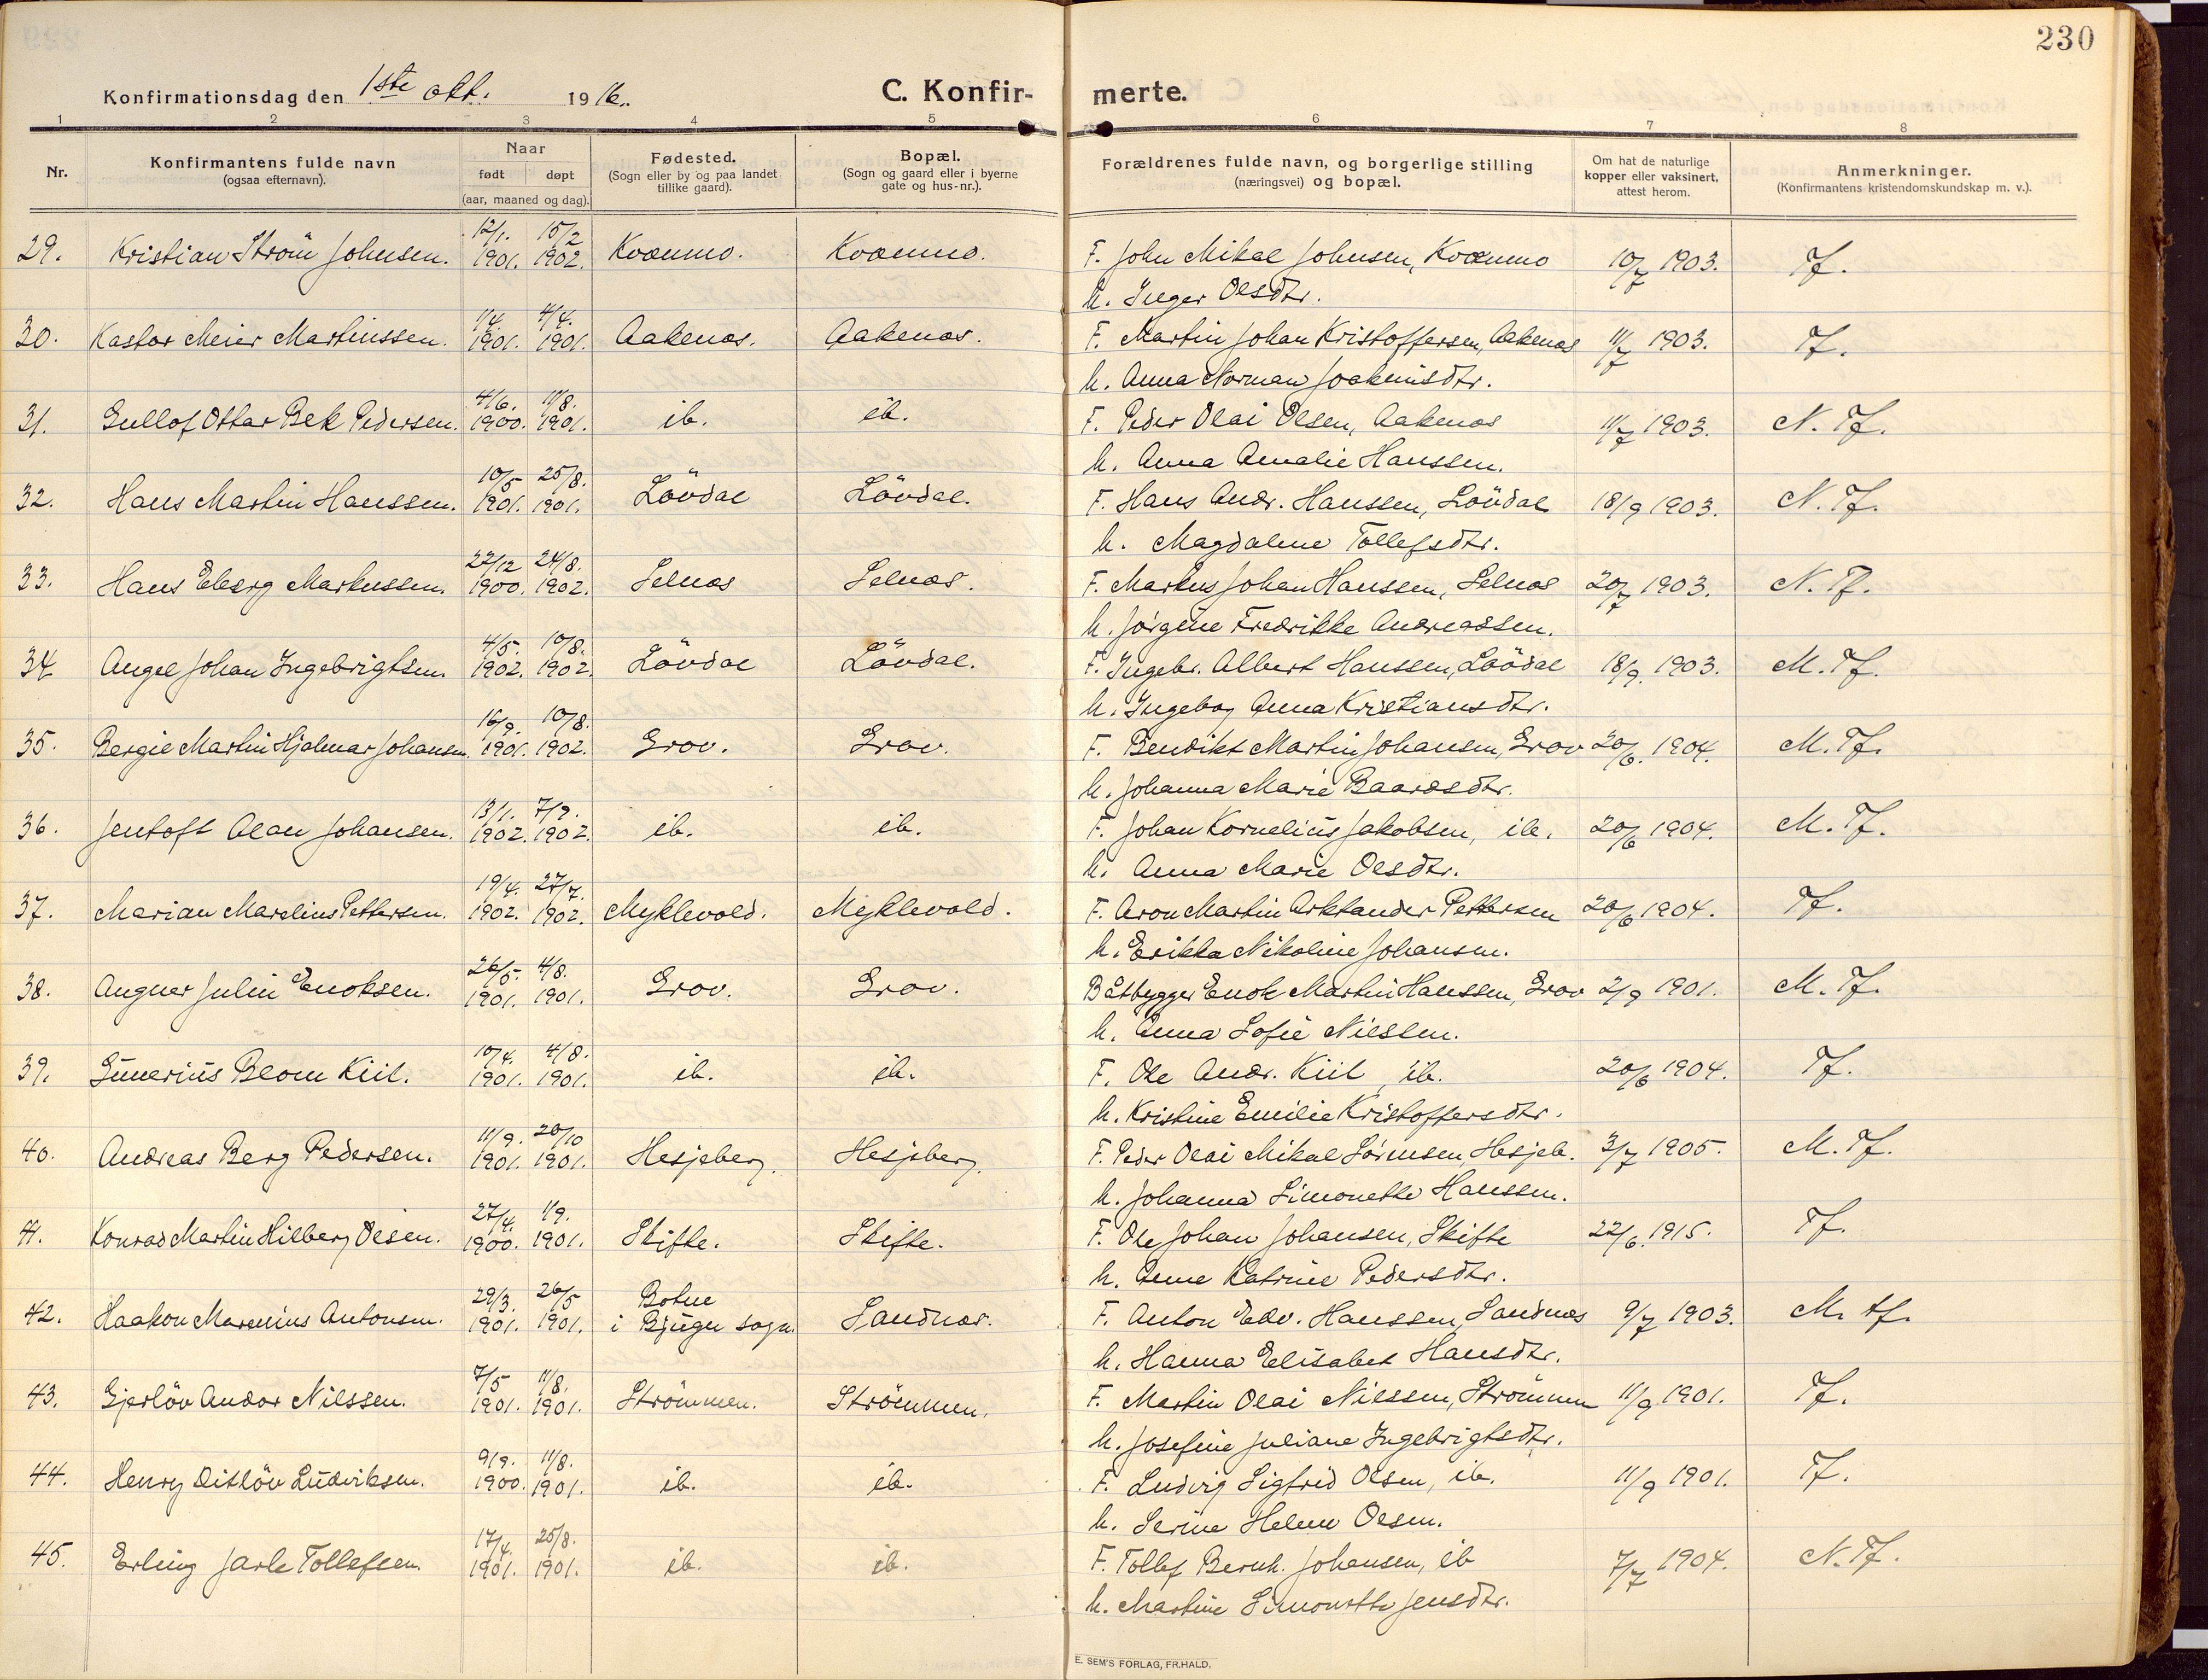 230
Konfirmationsdag den 1ste okt. 1916.
C. Konfirmerte.
1 2 3 4 5 6 7 8
Nr.
Konfirmantens fulde navn
(ogsaa efternavn).
Naar
født døpt
(aar, maaned og dag).
Fødested.
(Sogn eller by og paa landet
tillike gaard).
Bopæl.
(Sogn og gaard eller i byerne
gate og hus-nr.).
Forældrenes fulde navn, og borgerlige stilling
(næringsvei) og bopæl.
Om hat de naturlige
kopper eller vaksinert,
attest herom.
Anmerkninger.
(Konfirmantens kristendomskundskap m. v.).
29. Kristian Strøm Johnsen. 12/1. 1901. 15/2 1902. Kvænmo. Kvænmo. F. John Mikal Johnsen, Kvænmo 10/7 1903. Tf.
h. Inger Olsdtr.
30. Kastor Meier Martinssen. 1/4. 1901. 4/4. 1901. Aakenes. Aakenes. F. Martin Johan Kristoffersen, Aakenes 11/7 1903. Tf.
h. Anna Norman Joakimsdtr.
31. Gullof Ottar Bek Pedersen. 4/6. 1900. 11/8. 1901. ib. ib. F. Peder Olai Olsen, Aakenes 11/7 1903. N. Tf.
h. Anna Amalie Hanssen.
32. Hans Martin Hanssen. 10/5 1901. 25/8. 1901. Lövdal Lövdal. F. Hans Andr. Hanssen, Lövdal 18/9 1903. N. Tf.
h. Magdalene Tollefsdtr.
33. Hans Markussen. 22/12 1900. 24/8. 1902. Selnes Selnes. F. Markus Johan Hanssen, Selnes 20/7 1903. N. Tf.
h. Jörgine Fredrikke Andreassen.
34 Angel Johan Ingebrigtsen. 4/5. 1902. 10/8. 1902. Lövdal Lövdal. F. Ingebr. Albert Hanssen, Lövdal 18/9. 1903. M. Tf.
h. Ingebog Anna Kristiansdtr.
35. Bergie Martin Hjalmar Johansen. 16/9. 1901. 10/8. 1902. Grov. Grov. F. Bendikt Martin Johansen, Grov 20/6. 1904. M. Tf.
h. Johanna Marie Baardsdtr.
36. Jentoft Alan Johansen. 13/1. 1902. 7/9. 1902. ib. ib. F. Johan Kornelius Jakobsen, ib. 20/6 1904. M. Tf.
h. Anna Marie Olsdtr.
37. Marian Marelius Pettersen. 19/4. 1902. 27/7. 1902. Myklevold. Myklevold. F. Aron Martin Arktander Pettersen 20/6 1904. Tf.
h. Erikka Nikoline Johansen.
38. Angner Julin Enoksen. 26/5. 1901. 4/8. 1901. Grov. Grov. Båtbygger Enok Martin Hanssen, Grov 2/9 1901. M. Tf.
h. Anna Sofie Nilssen.
39. Gunerius Blom Kiil. 10/4. 1901. 4/8. 1901. ib. ib. F. Ole Andr. Kiil, ib. 20/6 1904. Tf.
h. Kristine Emilie Kristoffersdtr.
40. Andreas Berg Pedersen. 11/9. 1901. 20/10 1901. Hesjeberg. Hesjeberg. F. Peder Olai Mikal Sörensen, Hesjeb. 3/7 1905. M. Tf.
h. Johanna Simonette Hanssen.
41. Konrad Martin Hilberg Olsen. 27/4. 1900. 1/9. 1901. Skifte. Skifte. F. Ole Johan Johansen, Skifte 22/6. 1915. Tf.
h. Anne Katrine Pedersdtr.
42. Haakon Marenius Antonsen. 29/3. 1901. 26/5 1901. Botne i Bjugn sogn. Sandnes. F. Anton Edv. Hanssen, Sandnes 9/7 1903. M. tf.
h. Hanna Elisabet Hansdtr.
43. Gjerlöv Andor Nilssen. 7/5 1901. 11/8. 1901. Strömmen. Strömmen. F. Martin Olai Nilssen, Strömmen 11/9 1901. Tf.
h. Josefine Juliane Ingebrigtsdtr.
44. Henry Ditlöv Ludviksen. 9/9. 1900. 11/8. 1901. ib. ib. F. Ludvig Sigfrid Olsen, ib. 11/9 1901. Tf.
h. Serine Helene Olsen.
45. Erling Jarle Tollefsen. 17/4. 1901. 25/8. 1901. ib. ib. F. Tollef Bernh. Johansen, ib 7/7 1904. N. Tf.
h. Martine Simonette Jensdtr.
E. SEM'S FORLAG, FR.HALD.